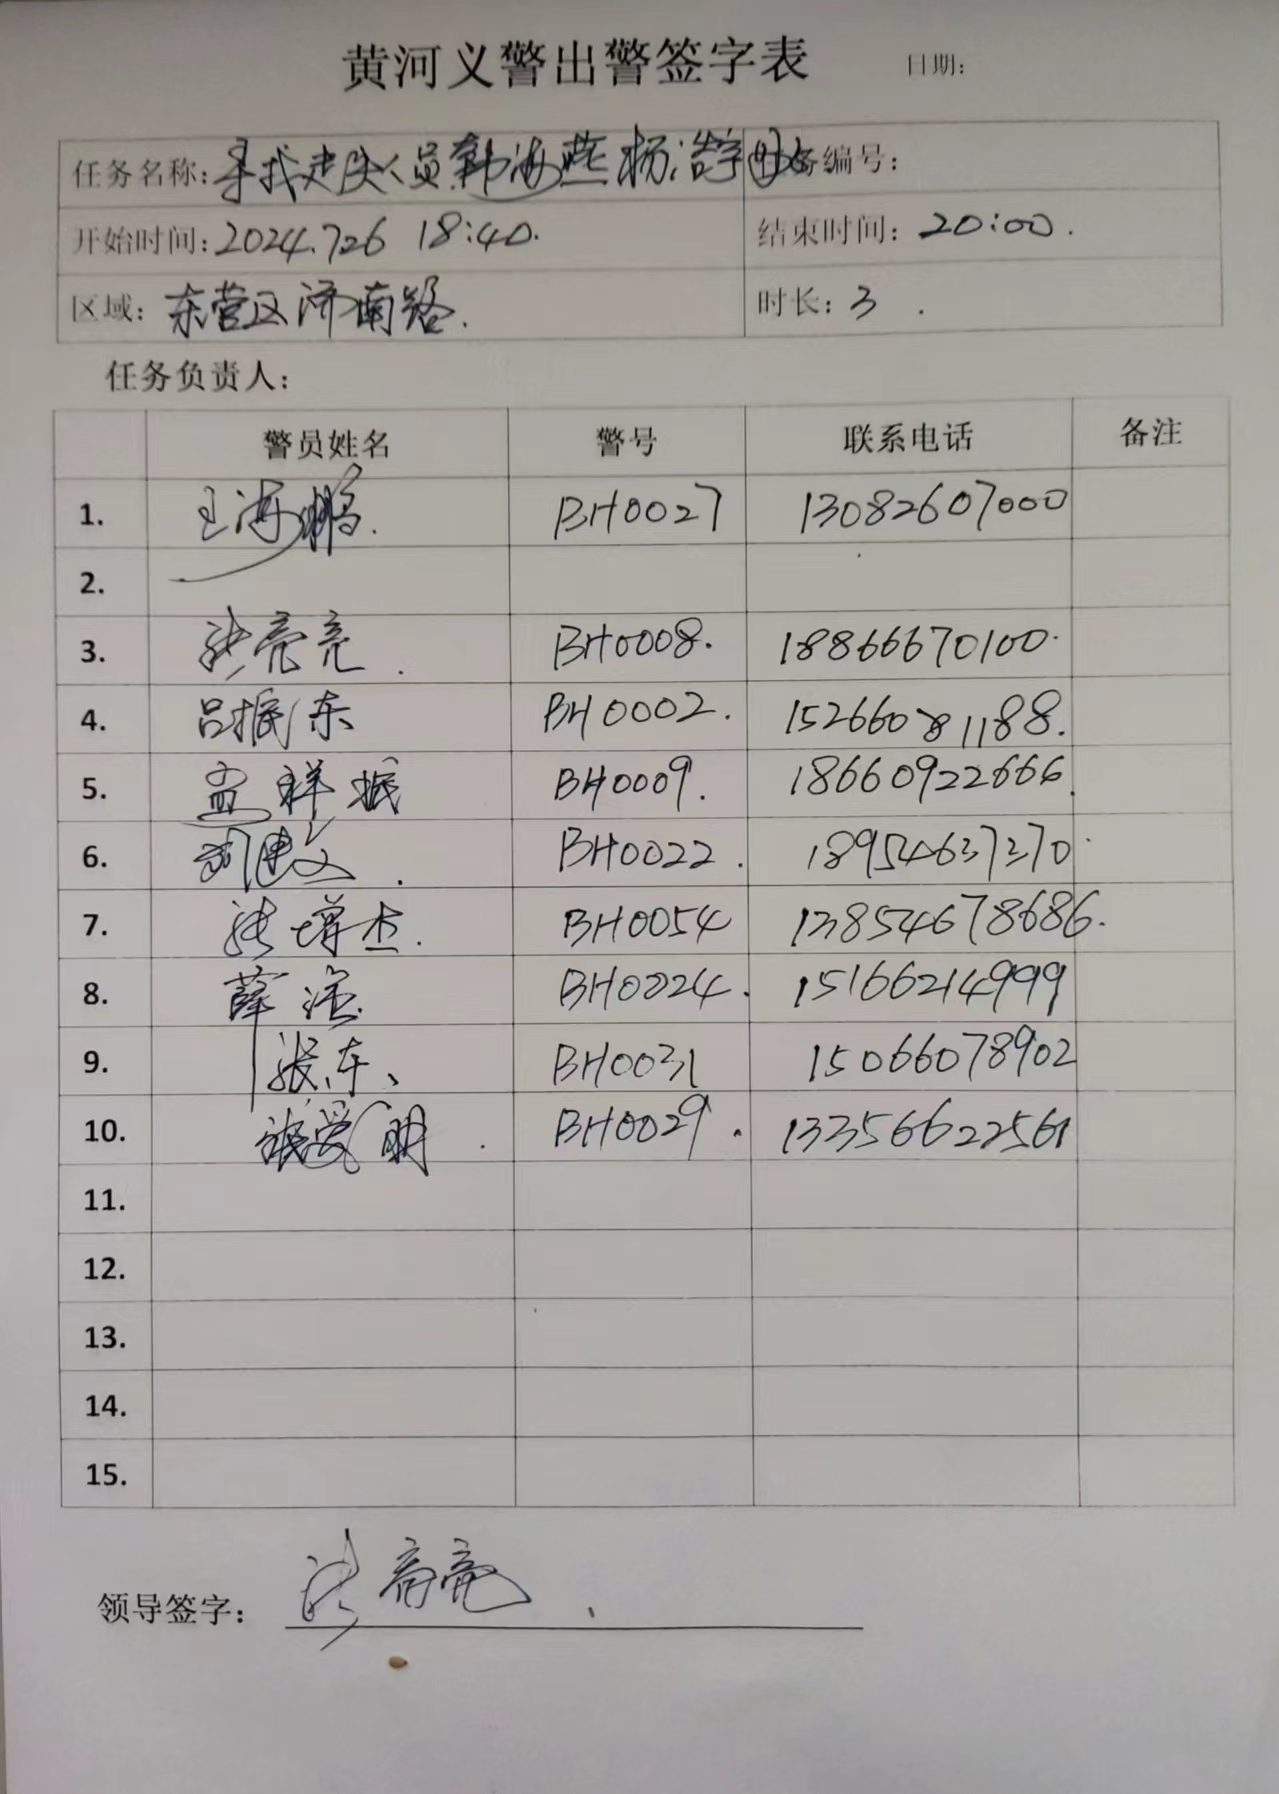 黄河义警出警签字表 日期:
任务名称: 寻找走失人员韩海燕杨浩宇母女 务编号:
开始时间: 2024.726 18:40. 结束时间: 20:00.
区域: 东营区济南路. 时长: 3.
任务负责人:
警员姓名 警号 联系电话 备注
1. 王海鹏. BH0027 13082607000
2.
3. 张亮亮. BH0008. 18866670100.
4. 吕振东 BH0002. 15266081188.
5. 孟祥振 BH0009. 18660922666.
6. 刘建文. BH0022. 18954637370.
7. 张增杰. BH0054 13854678686.
8. 薛 BH0024. 15166214999
9. 张东、 BH0031 15066078902
10. 张爱明. BH0029. 13356622561
11.
12.
13.
14.
15.
领导签字: 张亮亮.